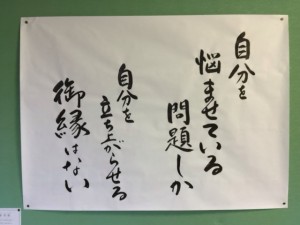 自分を
悩ませている
問題しか
自分を
立ち上がらせる
御縁はない